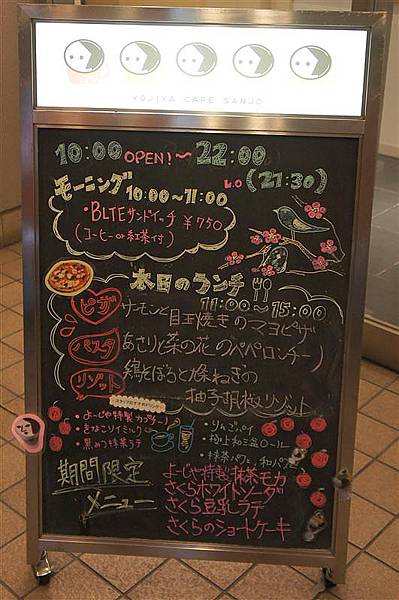 YOJIYA CAFE SANJO
10:00 OPEN!〜22:00
L.O (21:30)
モーニング 10:00〜11:00
・BLTEサンドイッチ ¥750
(コーヒー or 紅茶付)
本日のランチ
11:00〜15:00
ピザ サーモンと
目玉焼きのマヨピザ
パスタ あさりと菜の花のペペロンチーノ
リゾット 鶏そぼろと焼ねぎの
柚子胡椒リゾット
・よーじや特製カプチーノ
・きなこソイミルク
・黒みつ抹茶ラテ
・りんごパイ
・極上和三盆ロール
・抹茶パフェ、和パフェ
期間限定
メニュー
よーじや特製抹茶モカ
さくらホワイトソーダ
さくら豆乳ラテ
さくらのショートケーキ